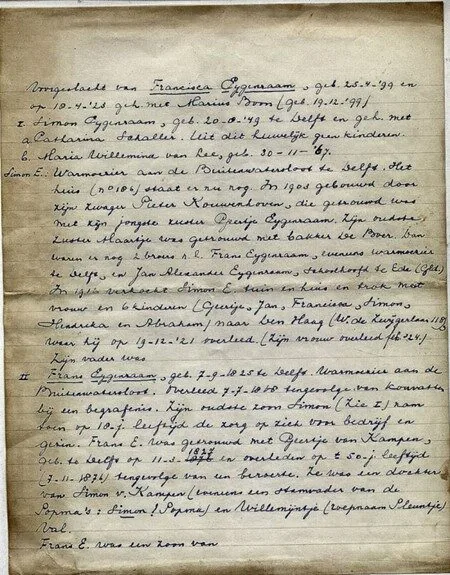 Voorgeslacht van Francisca Eygenraam, geb. 25-4-'99 en
op 18-4-'23 geh. met Marius Boon (geb. 19-12-'99)
I. Simon Eygenraam, geb. 20-8-'49 te Delft en geh. met
a. Catharina Schaller. Uit dit huwelijk geen kinderen.
b. Maria Willemina van Lee, geb. 30-11-'67.
Simon E. Warmoezier aan de Buitenwatersloot te Delft. Het
huis (no 186) staat er nu nog. In 1903 gebouwd door
zijn zwager Pieter Kouwenhoven, die getrouwd was
met zijn jongste zuster Pjertje Eygenraam. Zijn oudste
zuster Maartje was getrouwd met bakker De Boer. Dan
waren er nog 2 broers n.l. Frans Eygenraam, eveneens warmoezier
te Delft, en Jan Alexander Eygenraam, schoolhoofd te Ede (Gld.)
In 1912 verkocht Simon E. tuin en huis en trok met
vrouw en 6 kinderen (Geertje, Jan, Francisca, Simon,
Hendrika en Abraham) naar Den Haag (W. de Zwijgerlaan 118)
waar hij op 19-12-'21 overleed. (Zijn vrouw overleed feb-'24.)
Zijn vader was
II Frans Eygenraam, geb. 7-9-1825 te Delft. Warmoezier aan de
Buitenwatersloot. Overleed 7-7-1868 tengevolge van kouvatten
bij een begrafenis. Zijn oudste zoon Simon (zie I) nam
toen op 18-j. leeftijd de zorg op zich voor bedrijf en
gezin. Frans E. was getrouwd met Pjertje van Kampen,
geb. te Delft op 11-3- 1827 en overleden op 50-j. leeftijd
(7-11-1876) tengevolge van een beroerte. Ze was een dochter
van Simon v. Kampen (eveneens een stamvader van de
Popma's: Simon! Popma) en Willemijntje (roepnaam Pleuntje)
Val.
Frans E. was een zoon van